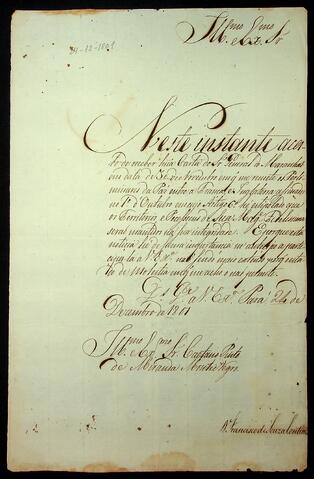 24-12-1801
Illmo Exmo Sr
Neste instante acabo
de receber hũa Carta do Sr General do Maranhão
em data de 30 de Novembro em q me os Preli-
minares da Paz entre a França, e Inglaterra assinados
no 1º de Outubro em cujo Artigo he estipulado que
os Territorios, e Possessoens de Sua Mage Fidelissima
serão mantidos na sua integridade. E porque esta
noticia he de summa importancia me a parti-
cipala a V. Exa
de Molestia em q me acho
Ds Ge a V. Exa Pará 24 de
Dezembro de 1801
Illmo Exmo Sr Caetano Pinto
de Miranda Montenegro
D. Francisco de Souza Coutinho